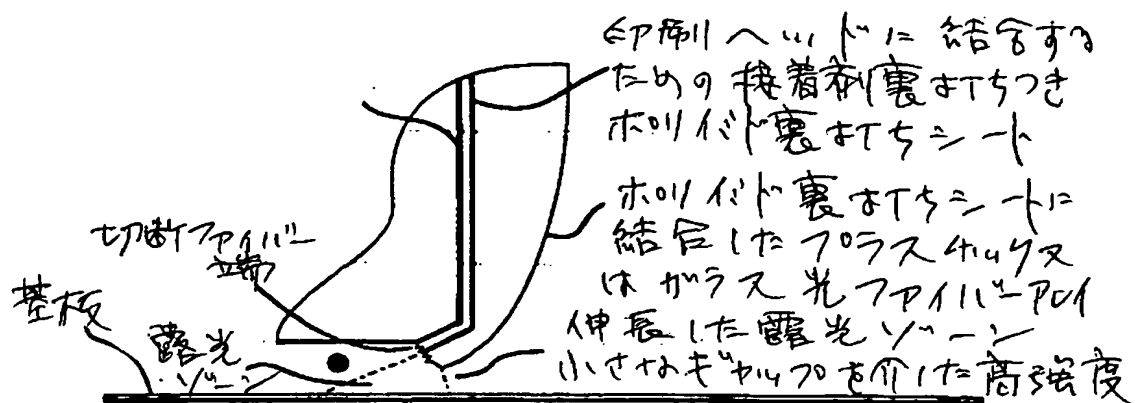 印刷ヘッドに結合する
ための接着剤裏打ちつき
ポリイミド裏打ちシート
ポリイミド裏打ちシートに
結合したプラスチックス
はガラス光ファイバーアレイ
伸長した露光ゾーン
小さなギャップを介した高強度
切断ファイバー
端
基板
露光
ゾーン